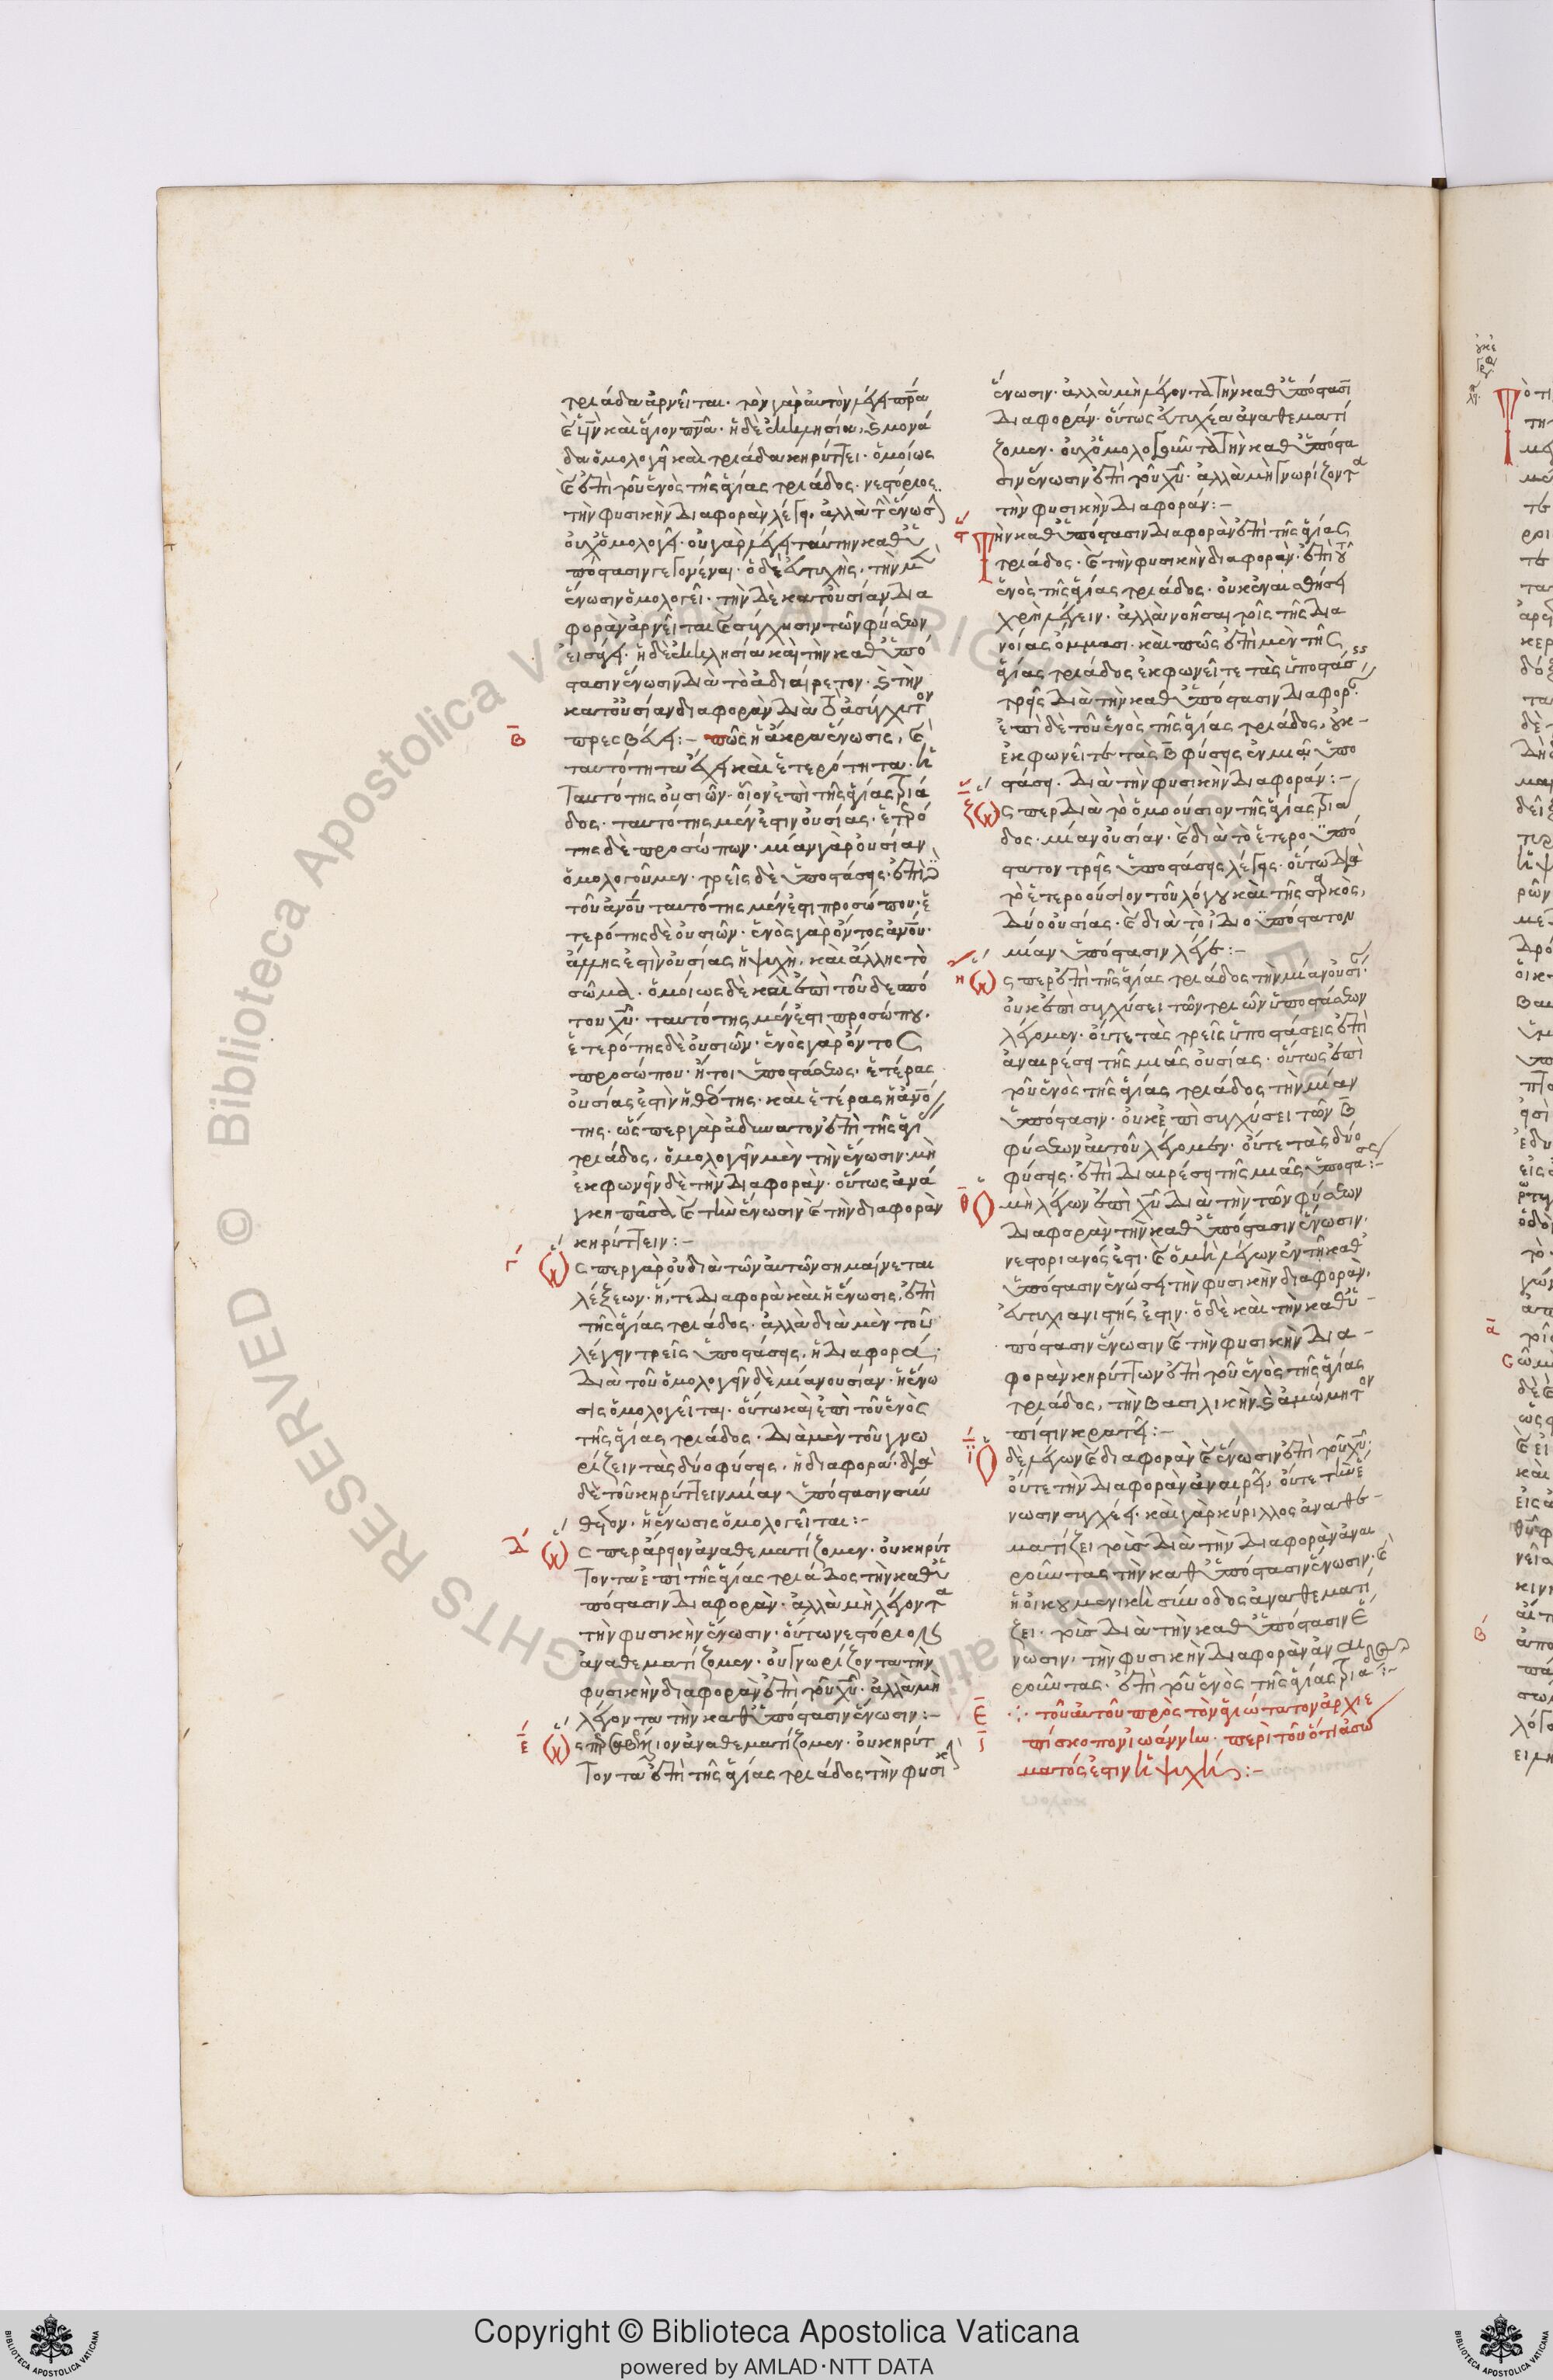 τριάδα ἀρνεῖται. τὸν γὰρ αὐτὸν λέγει πρ̅α
καὶ υἱὸν καὶ ἅγιον πν̅α. ἡ δὲ ἐκκλησία, καὶ μονά
δα ὁμολογεῖ καὶ τριάδα κηρύττει. ὁμοίως
καὶ ἐπὶ τοῦ ἑνὸς τῆς ἁγίας τριάδος. νεστόριος
τὴν φυσικὴν διαφορὰν λέγει. ἀλλὰ τὴν ἕνωσιν
οὐχ ὁμολογεῖ. οὐ γὰρ λέγει ταύτην καθ ὑ
πόστασιν γεγονέναι. ὁ δὲ εὐτυχὴς, τὴν μὲν
ἕνωσιν ὁμολογεῖ. τὴν δὲ κατ οὐσίαν δια
φορὰν ἀρνεῖται καὶ σύγχυσιν τῶν φύσεων
εἰσάγει. ἡ δὲ ἐκκλησία καὶ τὴν καθ ὑπό
στασιν ἕνωσιν διὰ τὸ ἀδιαίρετον. καὶ τὴν
κατ οὐσίαν διαφορὰν διὰ τὸ ἀσύγχυτον
Β πρεσβεύει:– πῶς ἡ ἄκρα ἕνωσις, καὶ
ταυτότητα ἔχει καὶ ἑτερότητα. ἢ
ταυτότης οὐσιῶν. οἷον ἐπὶ τῆς ἁγίας τριά
δος. ταυτότης μέν ἐστιν οὐσίας. ἑτερό
της δὲ προσώπων. μίαν γὰρ οὐσίαν
ὁμολογοῦμεν. τρεῖς δὲ ὑποστάσεις. ἐπὶ δὲ
τοῦ ἀν̅ο̅υ̅ ταυτότης μέν ἐστι προσώπου. ἑ
τερότης δὲ οὐσιῶν. ἑνὸς γὰρ ὄντος ἀν̅ο̅υ̅.
ἄλλης ἐστὶν οὐσίας ἡ ψυχὴ. καὶ ἄλλης τὸ
σῶμα. ὁμοίως δὲ καὶ ἐπὶ τοῦ δεσπό
του χ̅υ̅. ταυτότης μέν ἐστι προσώπου.
ἑτερότης δὲ οὐσιῶν. ἑνὸς γὰρ ὄντος
προσώπου. ἤτοι ὑποστάσεως. ἑτέρας
οὐσίας ἐστὶν ἡ θεότης. καὶ ἑτέρας ἡ ἀν̅ό
της. ὥσπερ γὰρ ἀδύνατον ἐπὶ τῆς ἁγίας
τριάδος, ὁμολογεῖν μὲν τὴν ἕνωσιν. μὴ
ἐκφωνεῖν δὲ τὴν διαφορὰν. οὕτως ἀνά
γκη πᾶσα καὶ τὴν ἕνωσιν καὶ τὴν διαφορὰν
κηρύττειν:–
Γ Ὥσπερ γὰρ οὐ διὰ τῶν αὐτῶν σημαίνεται
λέξεων. ἥ, τε διαφορὰ καὶ ἡ ἕνωσις, ἐπὶ
τῆς ἁγίας τριάδος. ἀλλὰ διὰ μὲν τοῦ
λέγειν τρεῖς ὑποστάσεις, ἡ διαφορά.
διὰ τοῦ ὁμολογεῖν δὲ μίαν οὐσίαν. ἡ ἕνω
σις ὁμολογεῖται. οὕτω καὶ ἐπὶ τοῦ ἑνὸς
τῆς ἁγίας τριάδος. διὰ μὲν τοῦ γνω
ρίζειν τὰς δύο φύσεις, ἡ διαφορά. διὰ
δὲ τοῦ κηρύττειν μίαν ὑπόστασιν σύν
θετον. ἡ ἕνωσις ὁμολογεῖται:–
Δ Ὥσπερ ἄρειον ἀναθεματίζομεν. οὐ κηρύτ
τοντα ἐπὶ τῆς ἁγίας τριάδος τὴν καθ ὑ
πόστασιν διαφορὰν. ἀλλὰ μὴ λέγοντα
τὴν φυσικὴν ἕνωσιν. οὕτω νεστόριον
ἀναθεματίζομεν. οὐ γνωρίζοντα τὴν
φυσικὴν διαφορὰν ἐπὶ τοῦ χ̅υ̅. ἀλλὰ μὴ
λέγοντα τὴν καθ ὑπόστασιν ἕνωσιν:–
Ε Ὥσπερ σαβέλλιον ἀναθεματίζομεν. οὐ κηρύτ
τοντα ἐπὶ τῆς ἁγίας τριάδος τὴν φυσικὴν
ἕνωσιν. ἀλλὰ μὴ λέγοντα τὴν καθ ὑπόστασιν
διαφοράν. οὕτως εὐτυχέα ἀναθεματί
ζομεν. οὐχ ὁμολογοῦντα τὴν καθ ὑπόστα
σιν ἕνωσιν ἐπὶ τοῦ χ̅υ̅. ἀλλὰ μὴ γνωρίζοντα
τὴν φυσικὴν διαφοράν:–
ϛ Τὴν καθ ὑπόστασιν διαφορὰν ἐπὶ τῆς ἁγίας
τριάδος. καὶ τὴν φυσικὴν διαφορὰν. ἐπὶ τοῦ
ἑνὸς τῆς ἁγίας τριάδος. οὐκ ἐναισθήσει
χρὴ λέγειν. ἀλλὰ νοῆσαι τοῖς τῆς δια
νοίας ὄμμασι. καὶ πῶς ἐπὶ μεν τῆς
ἁγίας τριάδος ἐκφωνεῖτε τὰς ὑποστάσεις
τρεῖς διὰ τὴν καθ ὑπόστασιν διαφοράν.
ἐπὶ δὲ τοῦ ἑνὸς τῆς ἁγίας τριάδος, οὐκ
ἐκφωνεῖτε τὰς β̅ φύσεις ἐν μιᾷ ὑπο
στάσει. διὰ τὴν φυσικὴν διαφοράν:–
ζ Ὥσπερ διὰ τὸ ὁμοούσιον τῆς ἁγίας τριά
δος. μίαν οὐσίαν. καὶ διὰ τὸ ἑτεροϋπό
στατον τρεῖς ὑποστάσεις λέγεις. οὕτω διὰ
τὸ ἑτεροούσιον τοῦ λόγου καὶ τῆς σαρκος,
δύο οὐσίας. καὶ διὰ τὸ ἰδιοϋπόστατον
μίαν ὑπόστασιν λέγε:–
η Ὥσπερ ἐπὶ τῆς ἁγίας τριάδος τὴν μίαν οὐσίαν.
οὐκ ἐπὶ συγχύσει τῶν τριῶν ὑποστάσεων
λέγομεν. οὔτε τὰς τρεῖς ὑποστάσεις ἐπὶ
ἀναιρέσει τῆς μιᾶς οὐσίας. οὕτως ἐπὶ
τοῦ ἑνὸς τῆς ἁγίας τριάδος τὴν μίαν
ὑπόστασιν. οὐκ ἐπὶ συγχύσει τῶν β̅
φύσεων αὐτοῦ λέγομεν. οὔτε τὰς δύο
φύσεις. ἐπὶ διαιρέσει τῆς μιᾶς ὑποστάσεως:–
θ Ὁ μὴ λέγων ἐπὶ χ̅υ̅ διὰ τὴν τῶν φύσεων
διαφορὰν τὴν καθ ὑπόστασιν ἕνωσιν.
νεστοριανός ἐστι. καὶ ὁ μὴ λέγων ἐν τῇ καθ
ὑπόστασιν ἑνώσει τὴν φυσικὴν διαφοράν,
εὐτυχιανιστής ἐστιν. ὁ δὲ καὶ τὴν καθ ὑ
πόστασιν ἕνωσιν καὶ τὴν φυσικὴν δια
φορὰν κηρύττων ἐπὶ τοῦ ἑνὸς τῆς ἁγίας
τριάδος, τὴν βασιλικὴν καὶ ἀμώμητον
πίστιν κρατεῖ:–
ι Ὁ δὲ λέγων καὶ διαφορὰν καὶ ἕνωσιν ἐπὶ τοῦ χ̅υ̅.
οὔτε τὴν διαφορὰν ἀναιρεῖ, οὔτε τὴν ἕ
νωσιν συγχέει. καὶ γὰρ κύριλλος ἀναθε
ματίζει τοὺς διὰ τὴν διαφορὰν ἀναι
ροῦντας τὴν καθ ὑπόστασιν ἕνωσιν. καὶ
ἡ οἰκουμενικὴ σύνοδος ἀναθεματί
ζει. τοὺς διὰ τὴν καθ ὑπόστασιν ἕ
νωσιν, τὴν φυσικὴν διαφορὰν ἀναι
ροῦντας. ἐπὶ τοῦ ἑνὸς τῆς ἁγίας τριάδος:–
Ε τοῦ αὐτοῦ πρὸς τὸν ἁγιώτατον ἀρχιε
πίσκοπον ἰωάννην. περὶ τοῦ ὅτι ἀσώ
ματός ἐστιν ἡ ψυχή:–
Copyright © Biblioteca Apostolica Vaticana
powered by AMLAD·NTT DATA